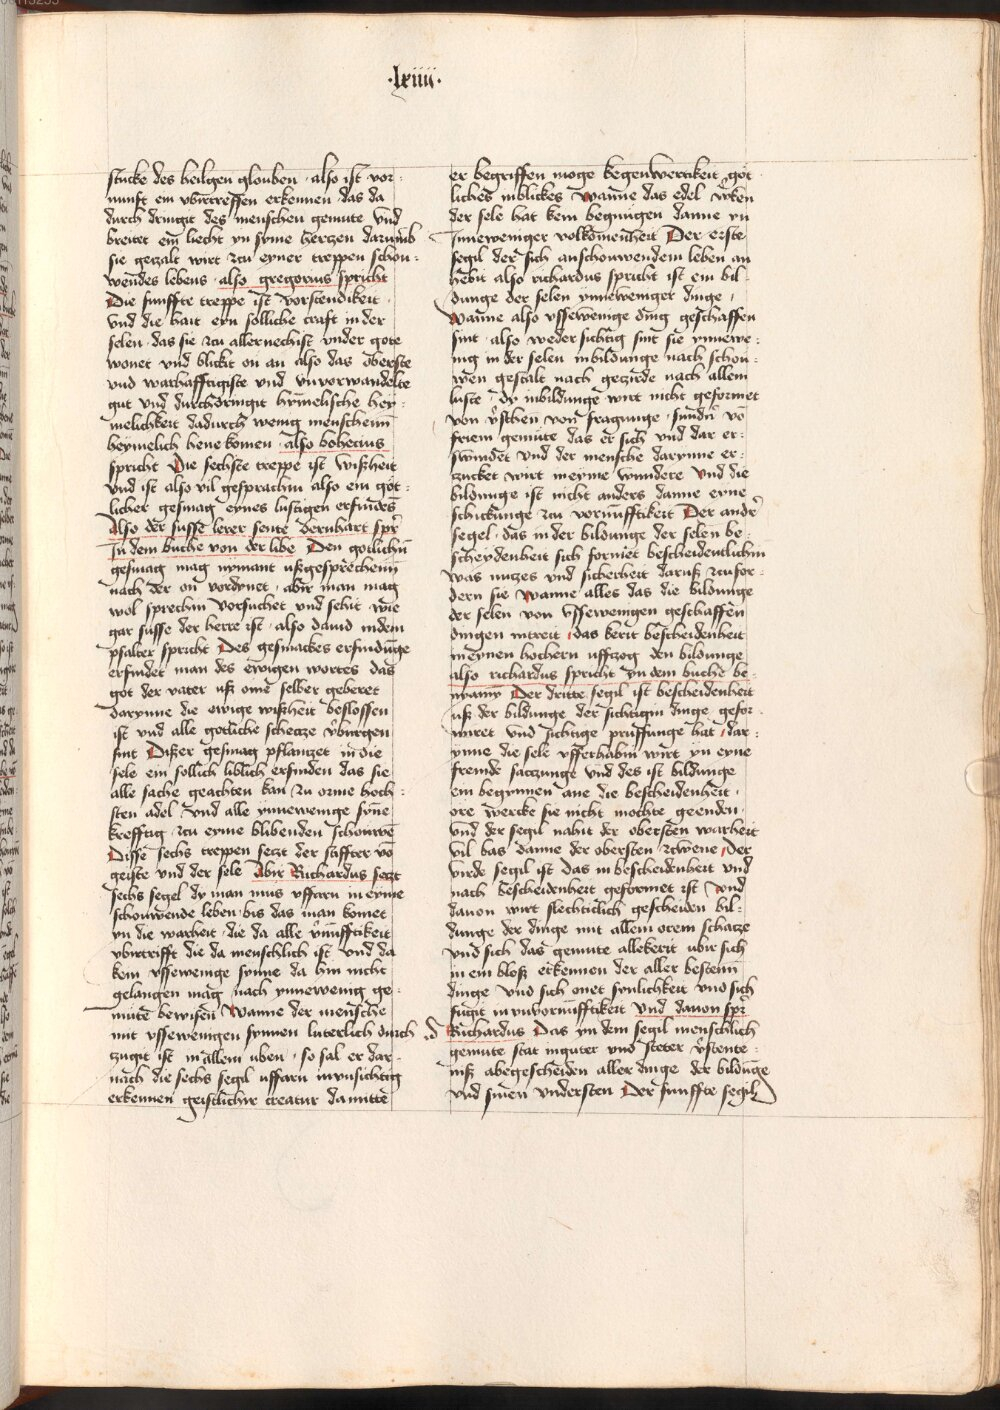 ·lxiiii·
stucke des heilgen glouben · also ist vor-
nunft ein vbirtreffen erkennen das da
durch dringit des menschen gemute vnd
breitet ein liecht yn syme hertzen darumb
sie gezalt wirt zcu eyner treppen schou-
wendes lebens · also gregorius spricht
Die funffte treppe ist vorstendikeit ·
vnd die hait eyn solliche craft in der
selen · das sie zcu allernehist vnder gote
wonet vnd blickt on an also das oberste
vnd warhafftigiste vnd vnvorwandelte
gut vnd durchdringit hymelische hey-
melichkeit dadurch wenig menschenn
heymelich hene komen · also bohecius
spricht Die sechste treppe ist wißheit
vnd ist also vil gesprachin also ein got-
licher gesmag eynes lustigen erfindes
Also der susse lerer sente Bernhart spr̄
In dem buche von der libe Den gotlichn̄
gesmag mag nymant ußgesprechenn
nach der on vordynet · abir man mag
wol sprechin vorsuchet vnd sehit wie
gar susse der herre ist · also dauid indem
psalter spricht Des gesmackes erfindūge
erfindet man des ewigen wortes das
got der vater uß ome selber geberet
darynne die ewige wißheit beslossen
ist vnd alle gotliche schetze v̄burgen
sint Dißer gesmag pflantzet in die
sele ein sollich liblich erfinden das sie
alle sache geachten kan zcu orme hoch-
sten adel · vnd alle ynnewenige syn̄e
krefftig · zcu eyme blibenden schouwē
Disse sechs treppen setzt der stiffter vō
geiste vnd der sele Abir Richardus setzt
sechs segel dy man mus vffarn in eyme
schouwende leben · bis das man komet
yn die warheit · die da alle v̄nufftikeit
vbirtrifft die da menschlich ist vnd da
kein vssewenige synne da hin nicht
gelangen mag nach ynnewenig ge-
mute bewisen Wanne der mensche
mit vssewenigen synnen luterlich durch
zugit ist in allem uben · so sal er dar-
nach die sechs segil uffarn in vnsichtig
erkennen geistlichir creatur damitte
er begriffen moge kegenwertikeit got
liches inblickes Wanne das edel v̄ken
der sele hat kein begnugen danne yn
Inneweniger volkōmenheit Der erste
segil der sich anschouwendem leben an
hebit also richardus spricht ist ein bil-
dunge der selen ynneweniger dinge ·
Wanne also vssewenige ding geschaffen
sint · also weder sichtig sint sie ynnewe-
nig in der selen inbildunge nach schou-
wen gestalt nach gezirde nach allem
luste · dy inbildunge wirt nicht geformet
von v̄schen von fragunge · sundn̄ vō
friem gemute das er sich vnd dar er-
swindet vnd der mensche darynne er-
zucket wirt in eyme wundere vnd die
bildunge ist nicht anders danne eyne
schickunge zcu vornūfftikeit Der andr̄
segel · das in der bildunge der selen be-
scheydenheit sich formet bescheidentlichin
was nutzes vnd sicherheit daruß zcufor-
dern sie Wanne alles das die bildunge
der selen von vssewenigen geschaffen
dingen intreit · das kerit bescheidenheit
in eynen hochern uffzog den bildunge
also richardus spricht yn dem buche be-
nyamy Der dritte segil ist bescheidenheit
uß der bildunge der sichtigin dinge gefor-
miret vnd sichtige pruffunge hat · dar-
ynne die sele vfferhabin wirt yn eyne
fremde satzunge vnd des ist bildunge
ein begynnen ane die bescheidenheit ·
ore wercke sie nicht mochte geenden ·
vnd der segil nahit der obersten warheit
vil bas danne der obersten zcwene · Der
virde segil ist das in bescheidenheit vnd
nach bescheidenheit geformet ist Vnd
dauon wirt slechticlich gescheiden bil-
dunge der dinge mit allem orem schatze
vnd sich das gemute allekerit ubir sich
in ein bloß erkennen der aller bestenn
dinge vnd sich onet synlichkeit vnd sich
fugit in vnvornūfftikeit Vnd dauon spr̄
Richardus Das yn dem segil menschlich
gemute stat inguter vnd steter v̄stente-
niß abegescheiden aller dinge der bildūge
vnd sinen vndersten Der funffte segil